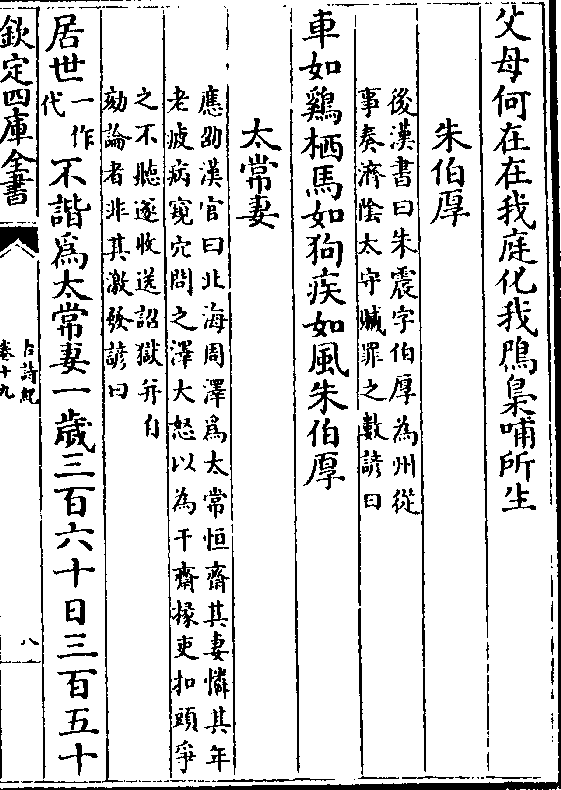 父母何在在我庭化我鳲梟哺所生
朱伯厚
後漢書曰朱震字伯厚為州從
事奏濟陰太守贓罪之數諺曰
車如鷄栖馬如狗疾如風朱伯厚
太常妻
應劭漢官曰北海周澤為太常恒齋其妻憐其年
老疲病窺穴問之澤大怒以為干齋掾吏扣頭爭
之不聽遂收送詔獄并自
劾論者非其激發諺曰
居世一作代不諧為太常妻一歲三百六十日三百五十
欽定四庫全書
古詩紀
卷十九
八